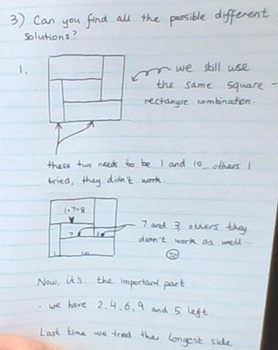 3) Can you find all the possible different
solutions?
1.
we still use
the same square -
rectangle combination.
these two needs to be 1 and 10, others I
tried, they didn't work.
1+7=8
7
7 and 3, others they
didn't work as well.
Now, it's the important part:
· we have 2, 4, 6, 9 and 5 left
Last time we tried the longest side